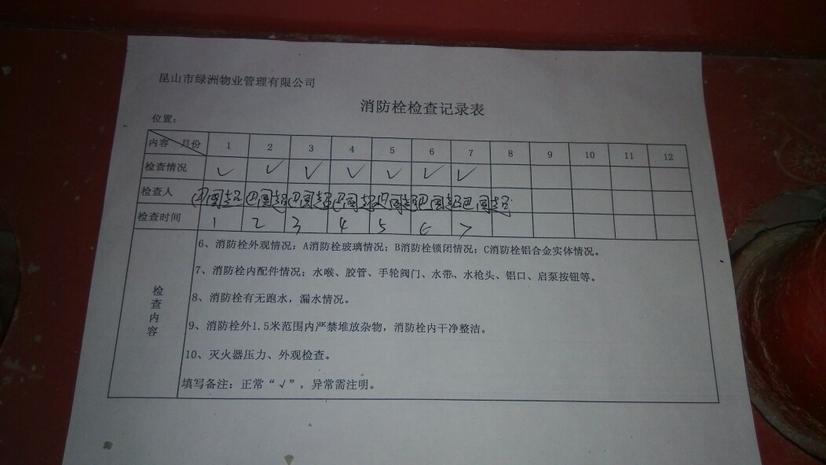 昆山市绿洲物业管理有限公司
消防栓检查记录表
位置：
内容 月份 1 2 3 4 5 6 7 8 9 10 11 12
检查情况 √ √ √ √ √ √ √
检查人
检查时间 1 2 3 4 5 6 7
检查内容
6、消防栓外观情况；A消防栓玻璃情况；B消防栓锁闭情况；C消防栓铝合金实体情况。
7、消防栓内配件情况；水喉、胶管、手轮阀门、水带、水枪头、铝口、启泵按钮等。
8、消防栓有无跑水，漏水情况。
9、消防栓外1.5米范围内严禁堆放杂物，消防栓内干净整洁。
10、灭火器压力、外观检查。
填写备注：正常“√”，异常需注明。